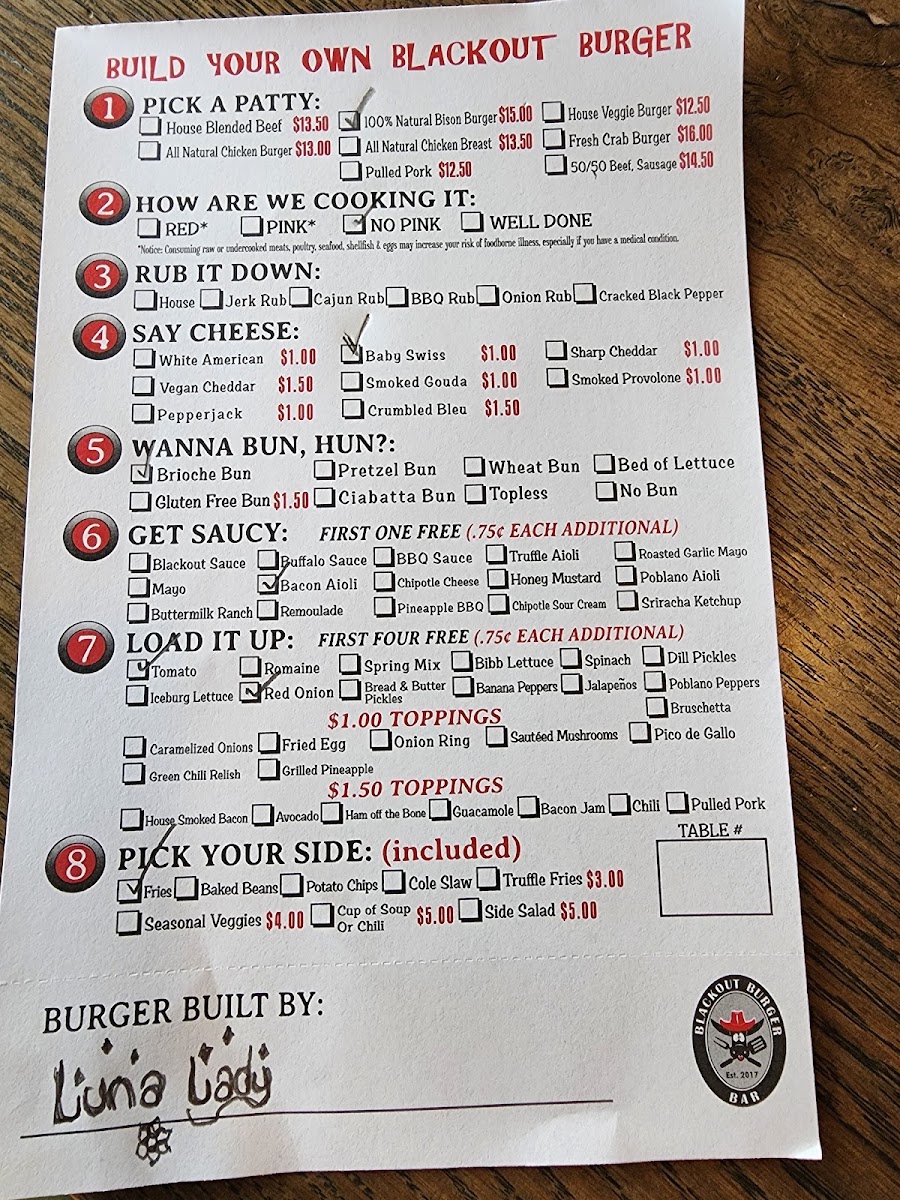 BUILD YOUR OWN BLACKOUT BURGER
1 PICK A PATTY:
House Blended Beef $13.50 100% Natural Bison Burger $15.00 House Veggie Burger $12.50
All Natural Chicken Burger $13.00 All Natural Chicken Breast $13.50 Fresh Crab Burger $16.00
Pulled Pork $12.50 50/50 Beef, Sausage $14.50
2 HOW ARE WE COOKING IT:
RED* PINK* NO PINK WELL DONE
*Notice: Consuming raw or undercooked meats, poultry, seafood, shellfish & eggs may increase your risk of foodborne illness, especially if you have a medical condition.
3 RUB IT DOWN:
House Jerk Rub Cajun Rub BBQ Rub Onion Rub Cracked Black Pepper
4 SAY CHEESE:
White American $1.00 Baby Swiss $1.00 Sharp Cheddar $1.00
Vegan Cheddar $1.50 Smoked Gouda $1.00 Smoked Provolone $1.00
Pepperjack $1.00 Crumbled Bleu $1.50
5 WANNA BUN, HUN?:
Brioche Bun Pretzel Bun Wheat Bun Bed of Lettuce
Gluten Free Bun $1.50 Ciabatta Bun Topless No Bun
6 GET SAUCY: FIRST ONE FREE (.75¢ EACH ADDITIONAL)
Blackout Sauce Buffalo Sauce BBQ Sauce Truffle Aioli Roasted Garlic Mayo
Mayo Bacon Aioli Chipotle Cheese Honey Mustard Poblano Aioli
Buttermilk Ranch Remoulade Pineapple BBQ Chipotle Sour Cream Sriracha Ketchup
7 LOAD IT UP: FIRST FOUR FREE (.75¢ EACH ADDITIONAL)
Tomato Romaine Spring Mix Bibb Lettuce Spinach Dill Pickles
Iceburg Lettuce Red Onion Bread & Butter Pickles Banana Peppers Jalapeños Poblano Peppers
Bruschetta
$1.00 TOPPINGS
Caramelized Onions Fried Egg Onion Ring Sautéed Mushrooms Pico de Gallo
Green Chili Relish Grilled Pineapple
$1.50 TOPPINGS
House Smoked Bacon Avocado Ham off the Bone Guacamole Bacon Jam Chili Pulled Pork
8 PICK YOUR SIDE: (included)
TABLE #
Fries Baked Beans Potato Chips Cole Slaw Truffle Fries $3.00
Seasonal Veggies $4.00 Cup of Soup Or Chili $5.00 Side Salad $5.00
BURGER BUILT BY:
Luna Lady
BLACKOUT BURGER
Est. 2017
BAR